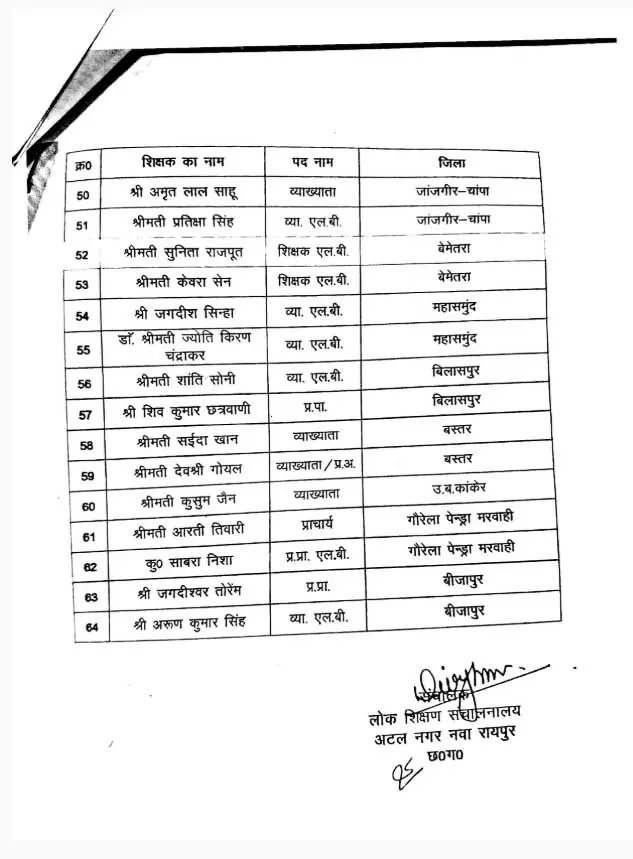 क्र0 शिक्षक का नाम पद नाम जिला
50 श्री अमृत लाल साहू व्याख्याता जांजगीर–चांपा
51 श्रीमती प्रतिक्षा सिंह व्या. एल.बी. जांजगीर–चांपा
52 श्रीमती सुनिता राजपूत शिक्षक एल.बी. बेमेतरा
53 श्रीमती केवरा सेन शिक्षक एल.बी. बेमेतरा
54 श्री जगदीश सिन्हा व्या. एल.बी. महासमुंद
55 डॉ. श्रीमती ज्योति किरण चंद्राकर व्या. एल.बी. महासमुंद
56 श्रीमती शांति सोनी व्या. एल.बी. बिलासपुर
57 श्री शिव कुमार छत्रवाणी प्र.पा. बिलासपुर
58 श्रीमती सईदा खान व्याख्याता बस्तर
59 श्रीमती देवश्री गोयल व्याख्याता/प्र.अ. बस्तर
60 श्रीमती कुसुम जैन व्याख्याता उ.ब.कांकेर
61 श्रीमती आरती तिवारी प्राचार्य गौरेला पेन्ड्रा मरवाही
62 कु0 साबरा निशा प्र.प्रा. एल.बी. गौरेला पेन्ड्रा मरवाही
63 श्री जगदीश्वर तोरेंम प्र.प्रा. बीजापुर
64 श्री अरूण कुमार सिंह व्या. एल.बी. बीजापुर
संचालक
लोक शिक्षण संचालनालय
अटल नगर नवा रायपुर
छ0ग0